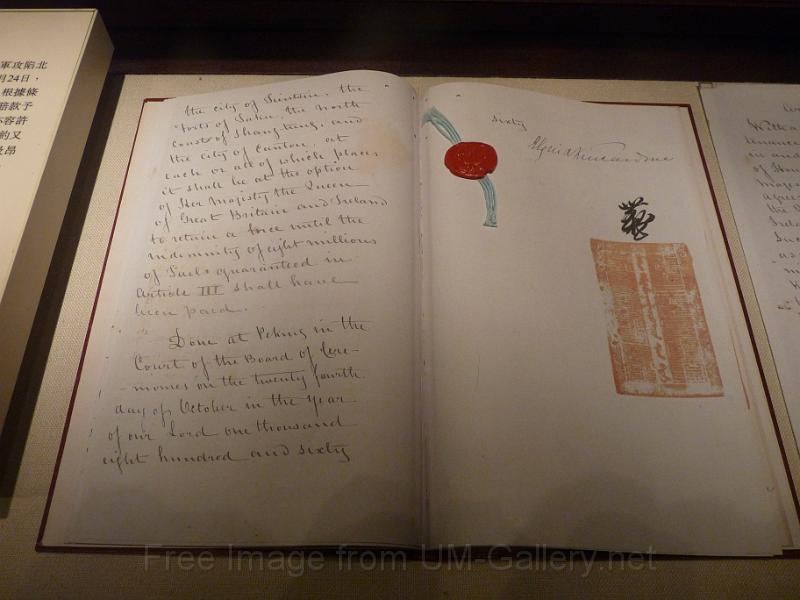 軍攻陷北
月24日，
根據條
賠款予
亦容許
約又
昂
the city of Tientsin, the
Forts of Taku, the north
coast of Shangtung, and
the city of Canton, at
each or all of which places
it shall be at the option
of Her Majesty the Queen
of Great Britain and Ireland
to retain a force until the
indemnity of eight millions
of Taels guaranteed in
Article III shall have
been paid.
Done at Peking in the
Court of the Board of Cere-
-monies on the twenty fourth
day of October in the Year
of our Lord one thousand
eight hundred and sixty
sixty
Elgin & Kincardine
With a
tenance
on and
of Hon
Majest
agrees
the 
Irela
Suc
as
Free Image from UM-Gallery.net